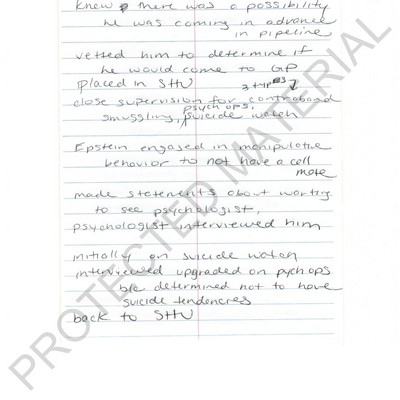 knew there was a possibility
he was coming in advance
in pipeline
vetted him to determine if
he would come to GP
placed in SHU
3 types
close supervision for contraband
psych ops,
smuggling, suicide watch
Epstein engaged in manipulative
behavior to not have a cell
mate
made statements about wanting
to see psychologist,
psychologist interviewed him
initially on suicide watch
interviewed upgraded on pych ops
b/c determined not to have
suicide tendencies
back to SHU
PROTECTED MATERIAL